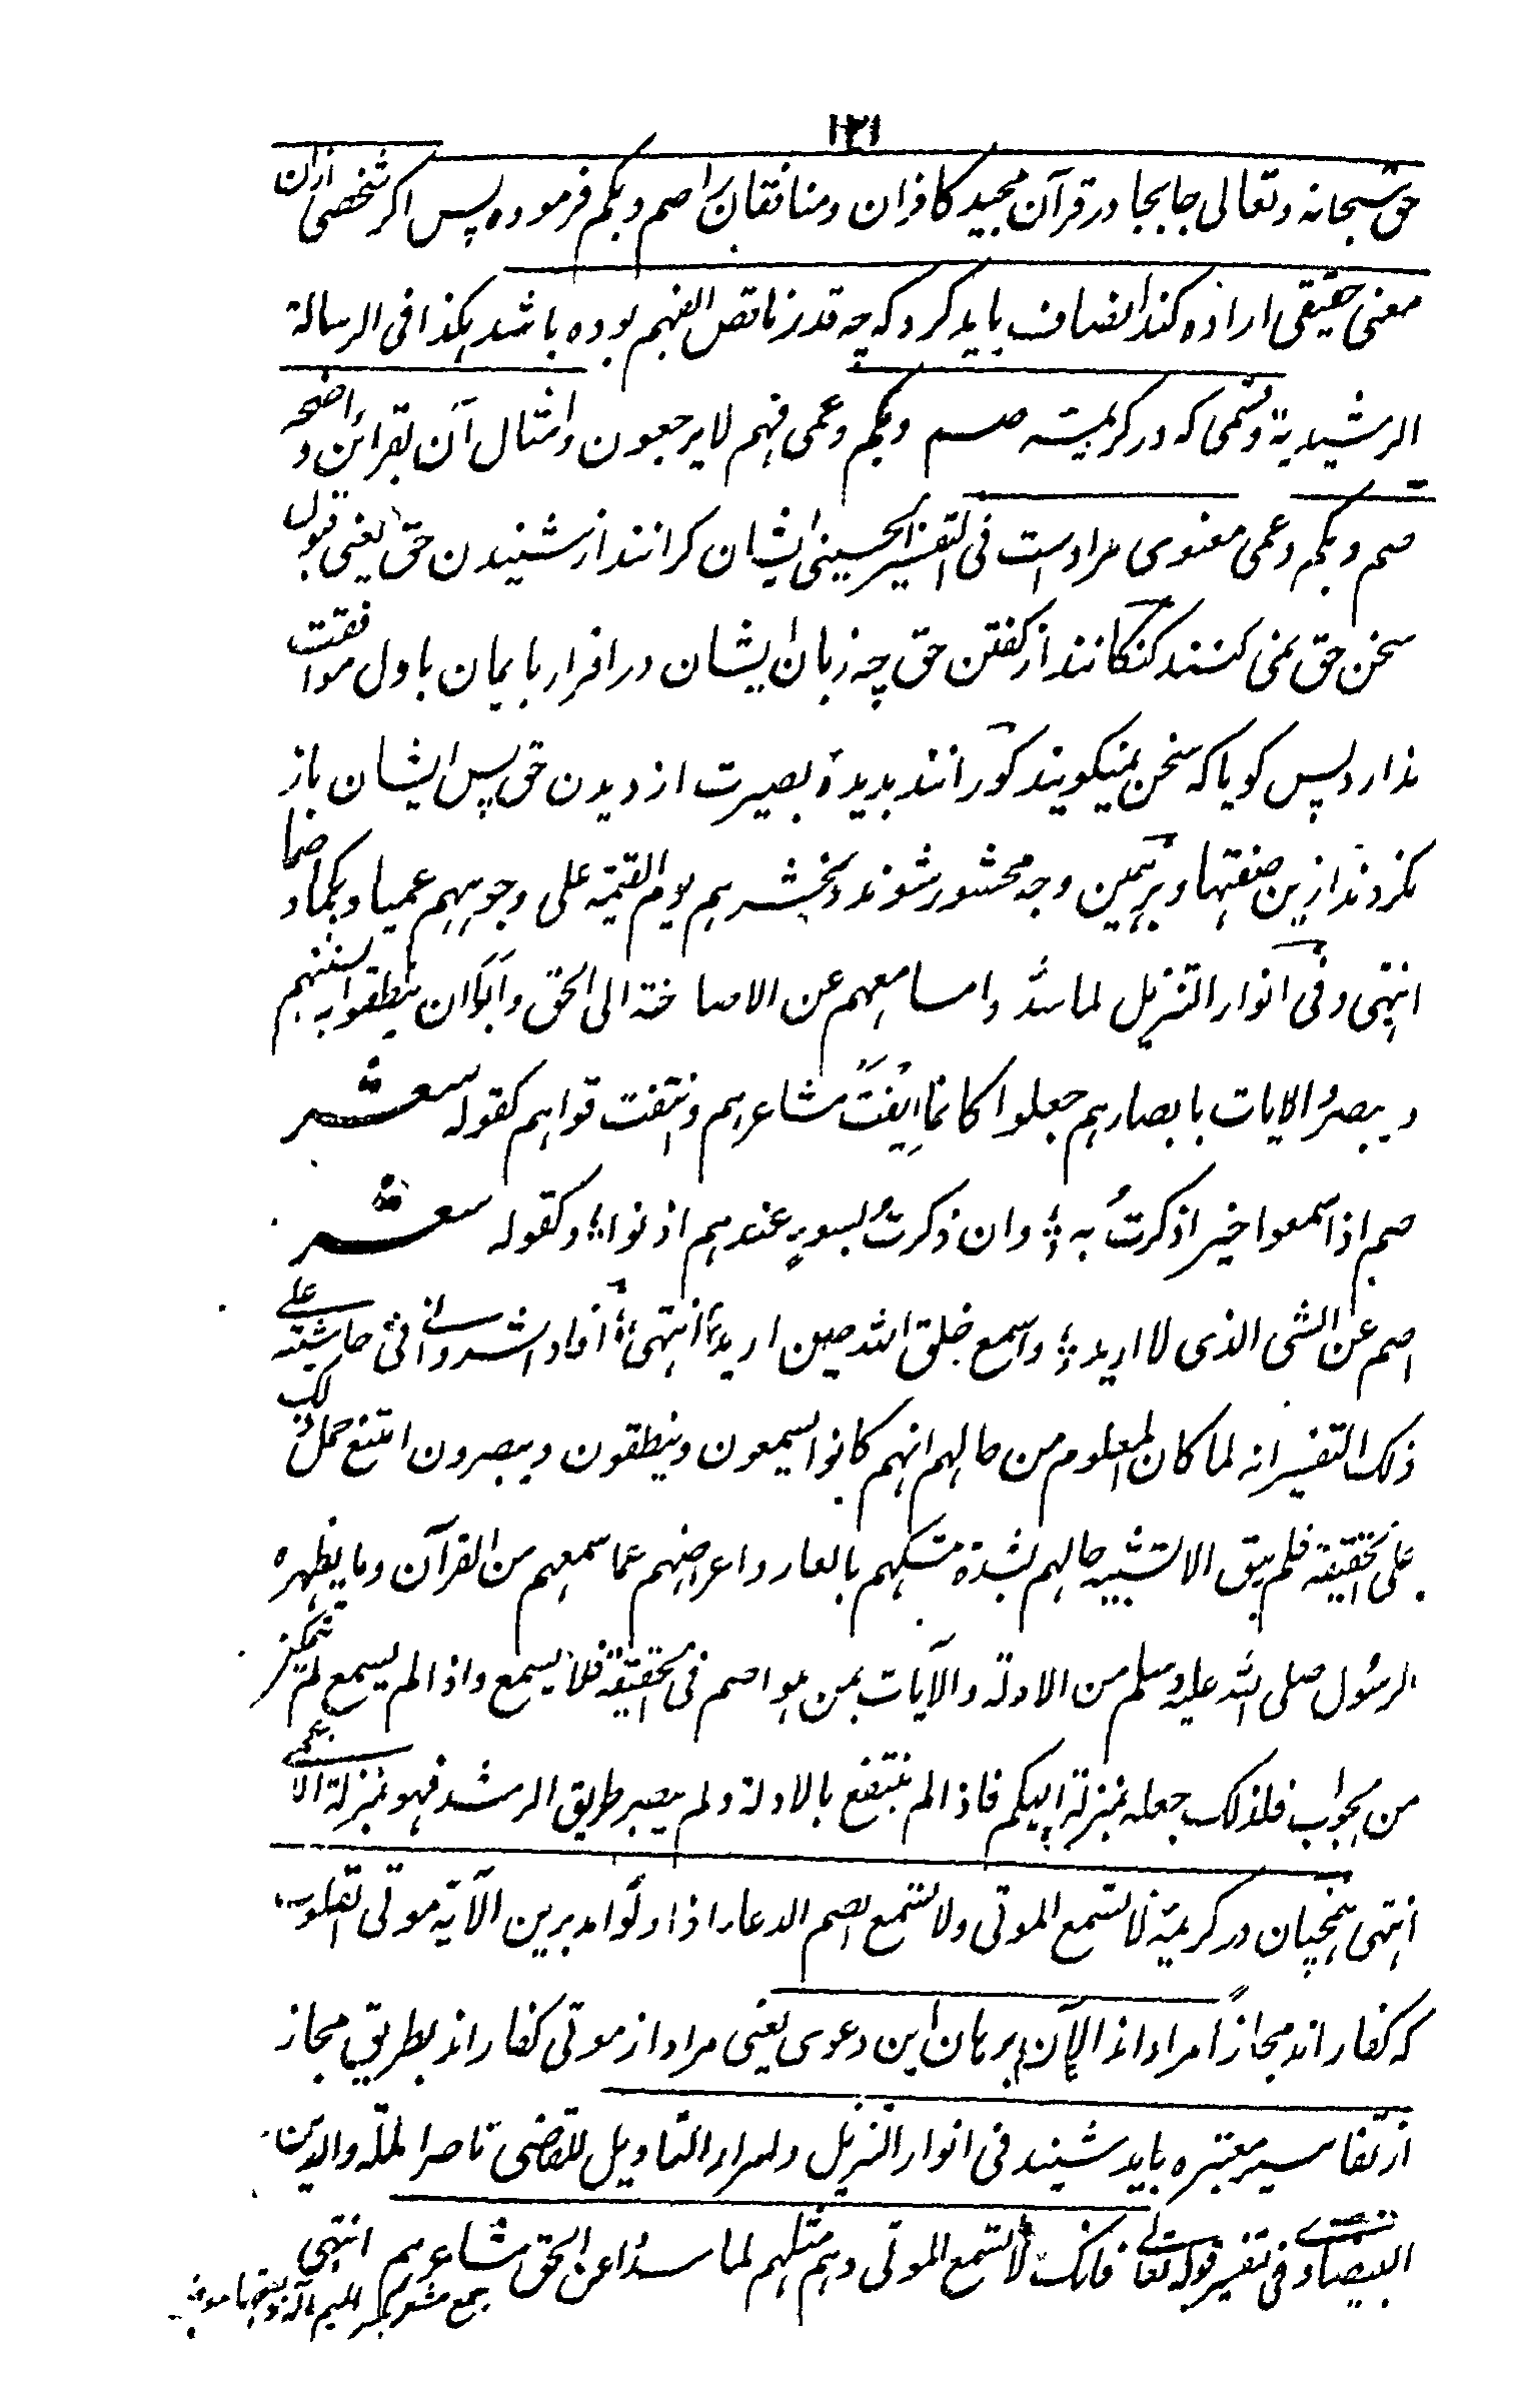 ۱۲۱
حق سبحانه وتعالی جابجا در قرآن مجید کافران ومنافقان را صم وبکم فرموده پس اکر شخصی ازان
معنی حقیقی اراده کند انصاف باید کرد که چه قدر ناقص الفهم بوده باشد هکذا فی الرسالة
الرشیدیة وقتمی که در کریمه صم وبکم وعمی فهم لا یرجعون وامثال آن بقرائن واضحه
صم وبکم وعمی معنوی مراد است فی التفسیر الحسینی ایشان کرانند از شنیدن حق یعنی قبول
سخن حق نمی کنند کنکانند از کفتن حق چه زبان ایشان در اقرار بایمان با دل موافقت
ندارد پس کویا که سخن نمیکویند کورانند بدیدهٔ بصیرت از دیدن حق پس ایشان باز
نکردند ازین صفتها وبرهمین وجه محشور شوند ونحشرهم یوم القیمة علی وجوههم عمیا وبکما وصما
انتهی وفی انوار التنزیل لما سدّوا مسامعهم عن الاصاخة الی الحق وابوا ان ینطقوا به السنتهم
ویبصروا الایات بابصارهم جعلوا کانما ایفت مشاعرهم وانتفت قواهم کقوله شعر
صم اذا سمعوا خیرا ذکرتُ به ؛ وان ذکرتُ بسوءٍ عندهم اذنوا ؛ وکقوله شعر
اصم عن الشی الذی لا ارید ؛ واسمع خلق الله حین ارید ؛ انتهی ؛ افاد الشروانی فی حاشیته علی
ذلک التفسیر انه لما کان المعلوم من حالهم انهم کانوا یسمعون وینطقون ویبصرون امتنع حمل ذلک
علی الحقیقة فلم یبق الا تشبیه حالهم لشدة تمسکهم بالعار واعراضهم عما سمعهم من القرآن وما یظهره
الرسول صلی الله علیه وسلم من الادلة والآیات بمن هو اصم فی الحقیقة فلا یسمع واذا لم یسمع لم یتمکن
من الجواب فلذلک جعله بمنزلة البکم فاذا لم ینتفع بالادلة ولم یبصر طریق الرشد فهو بمنزلة الاعمی
انتهی همچنان در کریمهٔ لا تسمع الموتی ولا تسمع الصم الدعاء اذا ولّوا مدبرین الآیة موتی القلوب
که کفار اند مجازاً مراد اند الآن برهان این دعوی یعنی مراد از موتی کفار اند بطریق مجاز
از تفاسیر معتبره باید شنید فی انوار التنزیل واسرار التاویل للقاضی ناصر الملة والدین
البیضاوی فی تفسیر قوله تعالی فانک لا تسمع الموتی وهم مثلهم لما سدّوا عن الحق مشاعرهم انتهی
جمع مشعر بکسر المیم